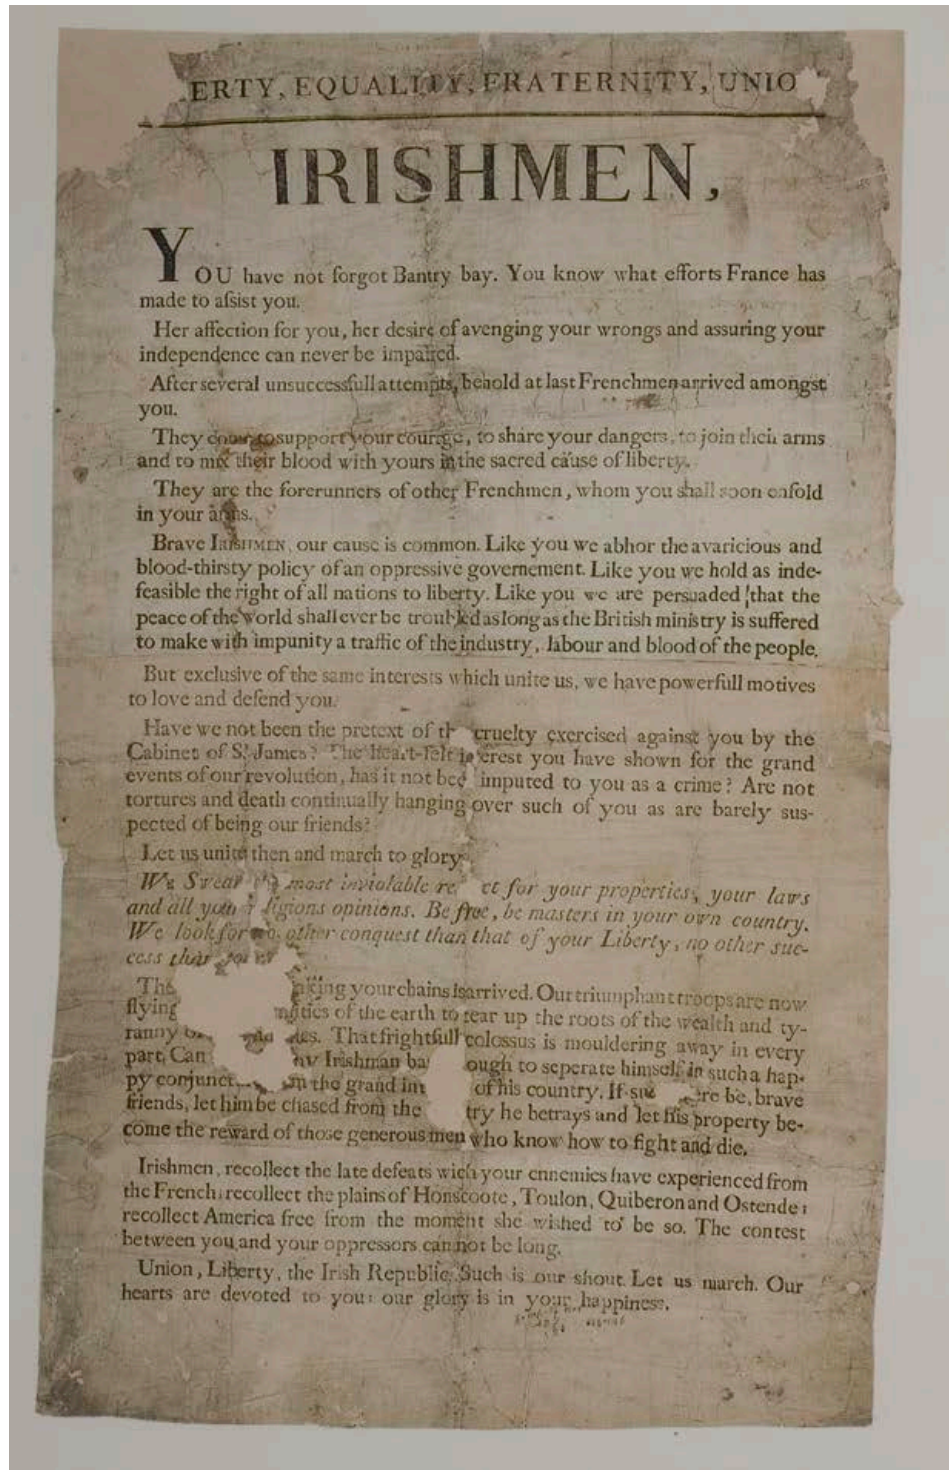 ERTY, EQUALITY, FRATERNITY, UNIO
IRISHMEN,
YOU have not forgot Bantry bay. You know what efforts France has
made to assist you.
Her affection for you, her desire of avenging your wrongs and assuring your
independence can never be impaired.
After several unsuccessfull attempts, behold at last Frenchmen arrived amongst
you.
They come to support your courage, to share your dangers, to join their arms
and to mix their blood with yours in the sacred cause of liberty.
They are the forerunners of other Frenchmen, whom you shall soon enfold
in your arms.
Brave IRISHMEN, our cause is common. Like you we abhor the avaricious and
blood-thirsty policy of an oppressive governement. Like you we hold as inde-
feasible the right of all nations to liberty. Like you we are persuaded that the
peace of the world shall ever be troubled as long as the British ministry is suffered
to make with impunity a traffic of the industry, labour and blood of the people.
But exclusive of the same interests which unite us, we have powerfull motives
to love and defend you.
Have we not been the pretext of th cruelty exercised against you by the
Cabinet of St. James? The heart-felt interest you have shown for the grand
events of our revolution, has it not bee imputed to you as a crime? Are not
tortures and death continually hanging over such of you as are barely sus-
pected of being our friends?
Let us unite then and march to glory.
We Swear the most inviolable re ct for your properties, your laws
and all your ligions opinions. Be free, be masters in your own country.
We look for no other conquest than that of your Liberty, no other suc-
cess than
The king your chains is arrived. Our triumphant troops are now
flying mities of the earth to tear up the roots of the wealth and ty-
ranny That frightfull colossus is mouldering away in every
part. Can ny Irishman ba ough to seperate himself in such a hap-
py conjunct on the grand int of his country. If suc ere be, brave
friends, let him be chased from the try he betrays and let his property be-
come the reward of those generous men who know how to fight and die.
Irishmen, recollect the late defeats wich your ennemies have experienced from
the French; recollect the plains of Honscoote, Toulon, Quiberon and Ostende;
recollect America free from the moment she wished to be so. The contest
between you and your oppressors cannot be long.
Union, Liberty, the Irish Republic. Such is our shout. Let us march. Our
hearts are devoted to you: our glory is in your happiness.